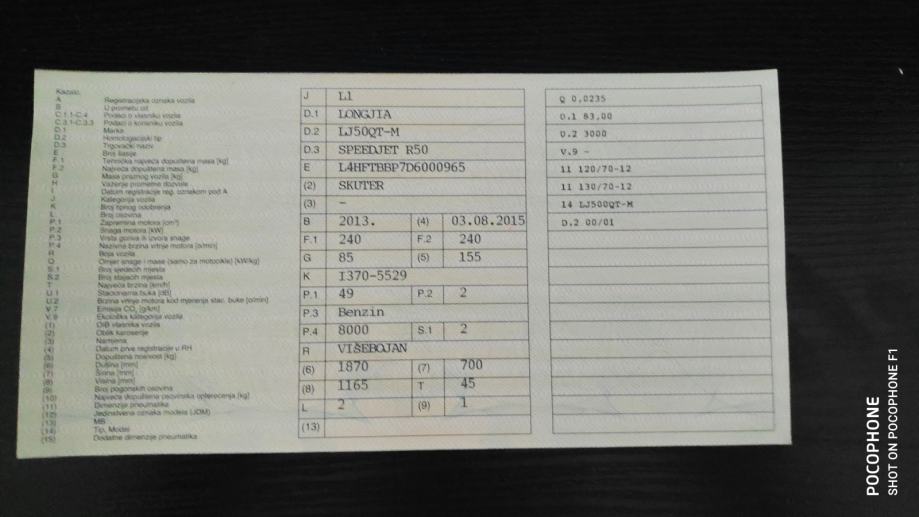 Kazalo:
A Registracijska oznaka vozila
B U prometu od
C.1.1-C.4 Podaci o vlasniku vozila
C.3.1-C.3.3 Podaci o korisniku vozila
D.1 Marka
D.2 Homologacijski tip
D.3 Trgovački naziv
E Broj šasije
F.1 Tehnička najveća dopuštena masa [kg]
F.2 Najveća dopuštena masa [kg]
G Masa praznog vozila [kg]
H Važenje prometne dozvole
I Datum registracije reg. oznakom pod A
J Kategorija vozila
K Broj tipnog odobrenja
L Broj osovina
P.1 Zapremina motora [cm³]
P.2 Snaga motora [kW]
P.3 Vrsta goriva ili izvora snage
P.4 Nazivna brzina vrtnje motora [o/min]
R Boja vozila
Q Omjer snage i mase (samo za motocikle) [kW/kg]
S.1 Broj sjedećih mjesta
S.2 Broj stajaćih mjesta
T Najveća brzina [km/h]
U.1 Stacionarna buka [dB]
U.2 Brzina vrtnje motora kod mjerenja stac. buke [o/min]
V.7 Emisija CO₂ [g/km]
V.9 Ekološka kategorija vozila
(1) OIB vlasnika vozila
(2) Oblik karoserije
(3) Namjena
(4) Datum prve registracije u RH
(5) Dopuštena nosivost [kg]
(6) Dužina [mm]
(7) Širina [mm]
(8) Visina [mm]
(9) Broj pogonskih osovina
(10) Najveća dopuštena osovinska opterećenja [kg]
(11) Dimenzije pneumatika
(12) Jedinstvena oznaka modela (JOM)
(13) MB
(14) Tip, Model
(15) Dodatne dimenzije pneumatika
J L1
D.1 LONGJIA
D.2 LJ50QT-M
D.3 SPEEDJET R50
E L4HFTBBP7D6000965
(2) SKUTER
(3) -
B 2013. (4) 03.08.2015
F.1 240 F.2 240
G 85 (5) 155
K I370-5529
P.1 49 P.2 2
P.3 Benzin
P.4 8000 S.1 2
R VIŠEBOJAN
(6) 1870 (7) 700
(8) 1165 T 45
L 2 (9) 1
(13)
Q 0,0235
U.1 83,00
U.2 3000
V.9 -
11 120/70-12
11 130/70-12
14 LJ500QT-M
D.2 00/01
POCOPHONE
SHOT ON POCOPHONE F1